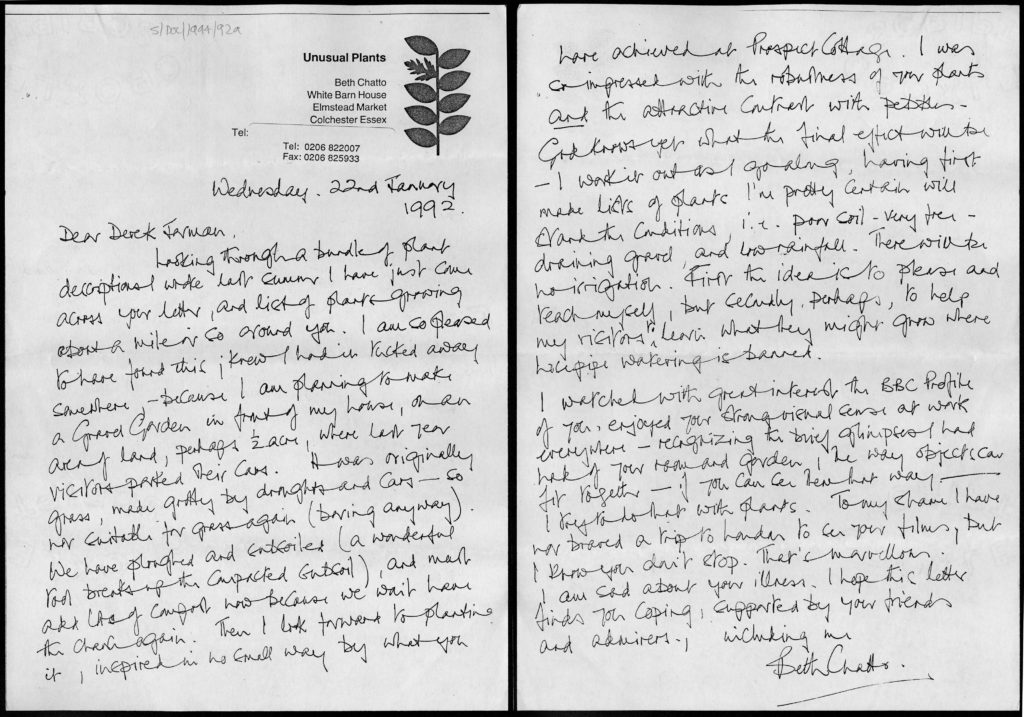 S/DOC/1944/92a
Unusual Plants
Beth Chatto
White Barn House
Elmstead Market
Colchester Essex
Tel:
Tel: 0206 822007
Fax: 0206 825933
Wednesday. 22nd January
1992.
Dear Derek Jarman,
Looking through a bundle of plant
descriptions I wrote last summer I have just come
across your letter, and list of plants growing
about a mile or so around you. I am so pleased
to have found this; I knew I had it tucked away
somewhere, - because I am planning to make
a Gravel Garden in front of my house, on an
area of land, perhaps ½ acre, where last year
visitors parked their cars. It was originally
grass, made grotty by droughts and cars — so
not suitable for grass again (boring anyway).
We have ploughed and subsoiled (a wonderful
tool breaks up the compacted subsoil), and must
add lots of compost now because we won't have
the chance again. Then I look forward to planting
it, inspired in no small way by what you
have achieved at Prospect Cottage. I was
so impressed with the robustness of your plants
and the attractive contrast with pebbles -
God knows yet what the final effect will be
- I work it out as I go along, having first
make lists of plants I'm pretty certain will
stand the conditions, i.e. poor soil - very free -
draining gravel, and low rainfall. There will be
no irrigation. First the idea is to please and
teach myself, but secondly, perhaps, to help
my visitors learn what they might grow where
hosepipe watering is banned.
I watched with great interest the BBC Profile
of you, enjoyed your strong visual sense at work
everywhere - recognizing the brief glimpses I had
had of your room and garden, the way objects can
fit together — if you can see them that way —
I try to do that with plants. To my shame I have
not braved a trip to London to see your films, but
I know you don't stop. That's marvellous.
I am sad about your illness. I hope this letter
finds you coping, supported by your friends
and admirers, including me
Beth Chatto.